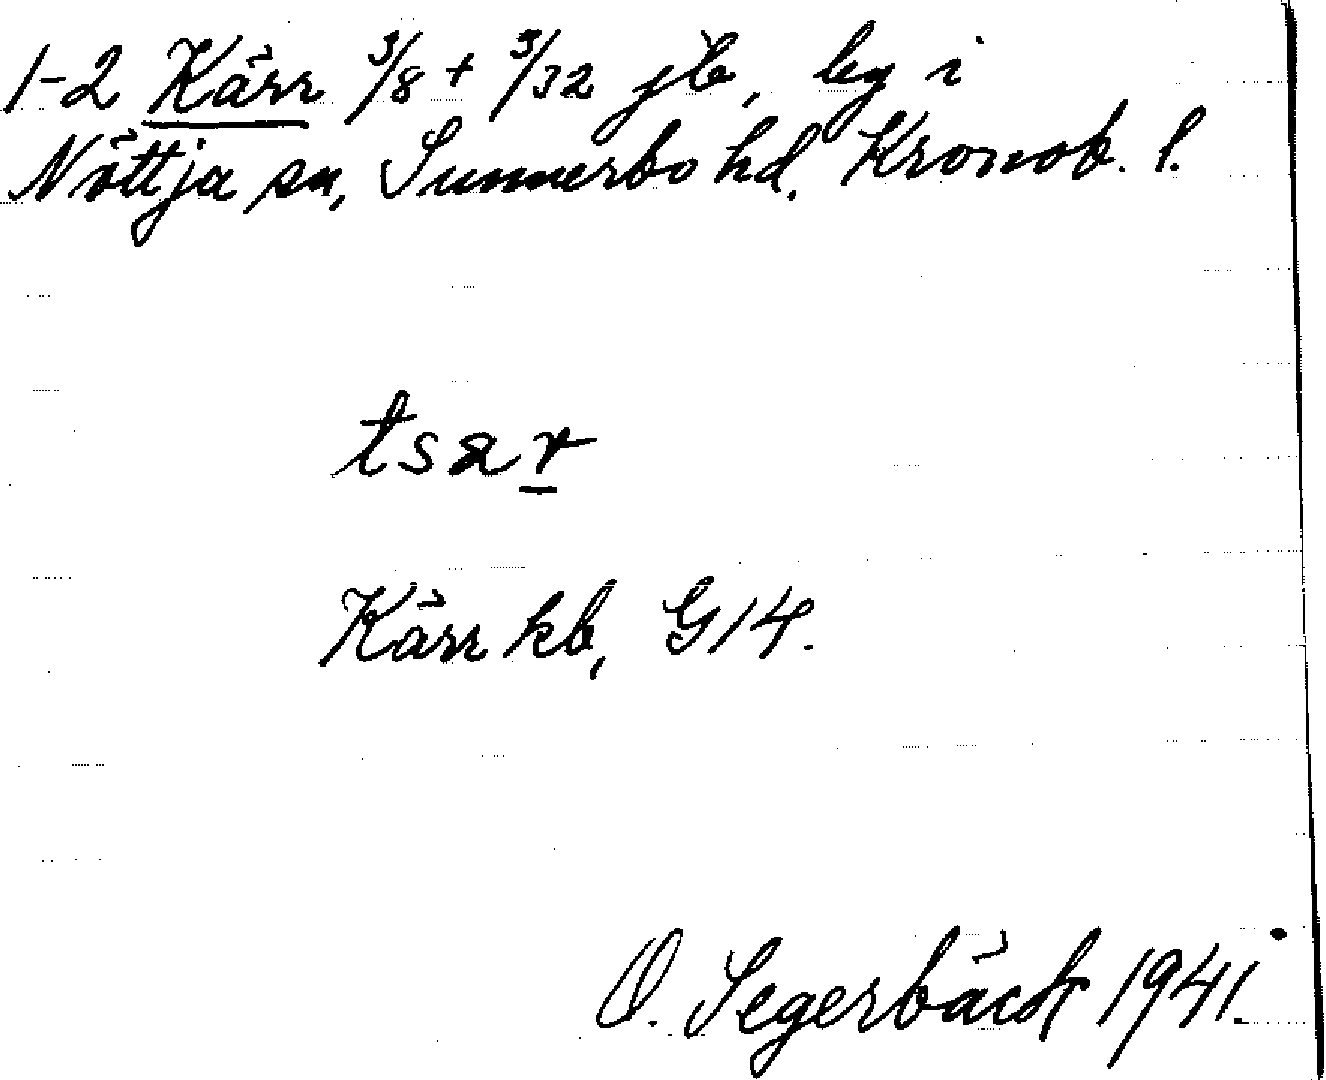 1-2 Kärr 3/8 + 3/32 jb, by i
Nöttja sn, Sunnerbo hd, Kronob. l.
tsar
Kärr kb, G14.
O. Segerbäck 1941.